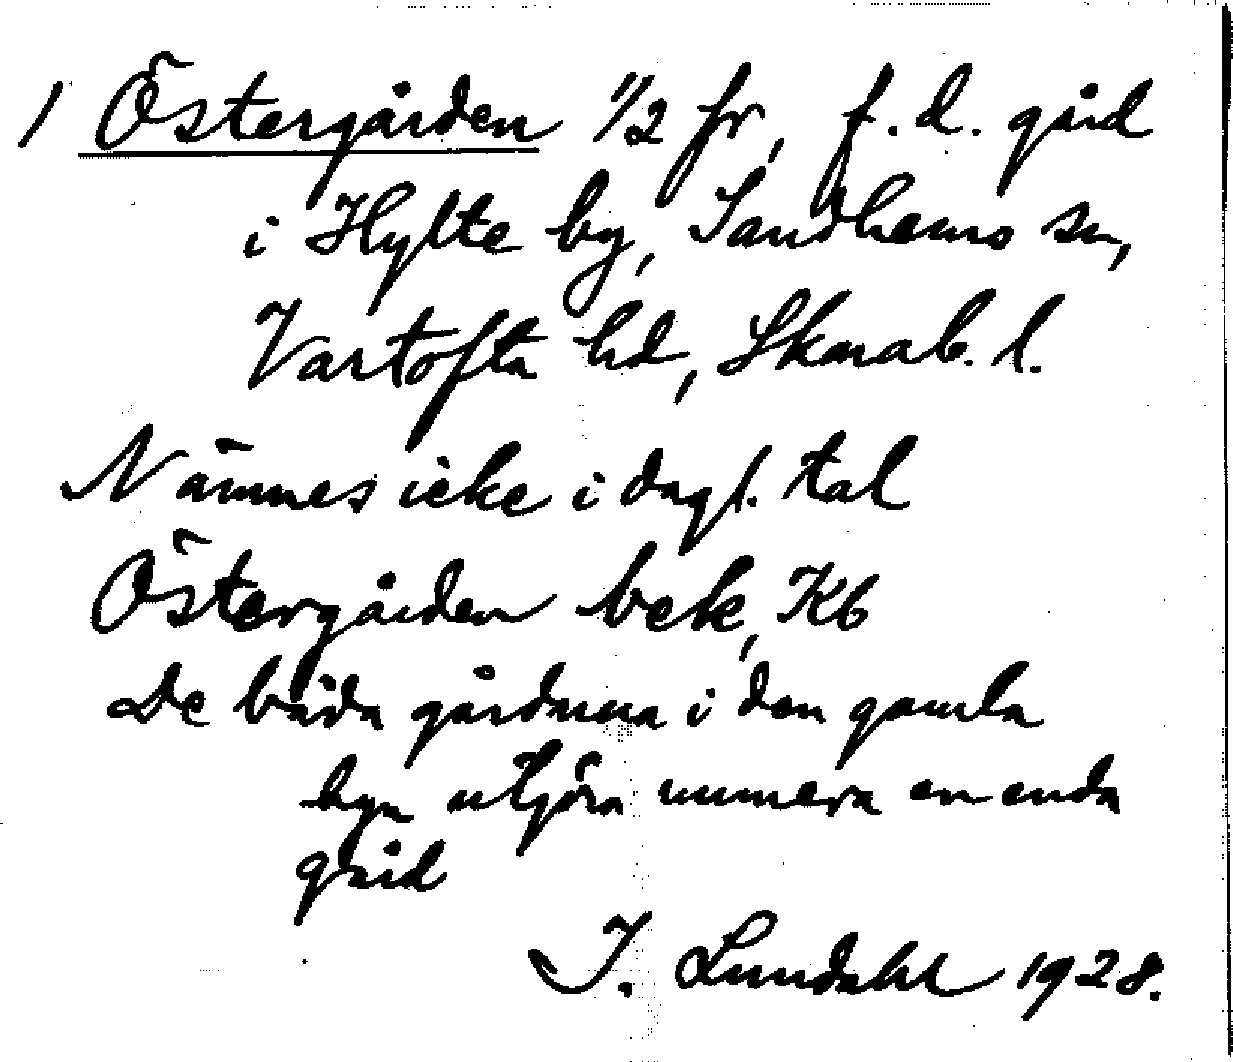 1 Östergården 1/2 fr, f.d. gård
i Hylte by, Sandhems sn,
Vartofta hd, Skarab. l.
Nämnes icke i dagl. tal
Östergården bek, Kb
De båda gårdarna i den gamla
byn utgöra numera en enda
gård
I. Lundahl 1928.